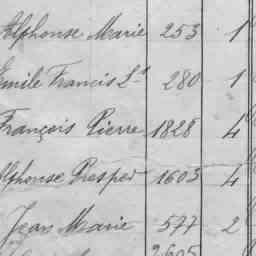 Alphonse Marie 253 1
Emile Francis Ls 280 1
François Pierre 1828 4
Alphonse Prosper 1603 4
Jean Marie 577 2
2605